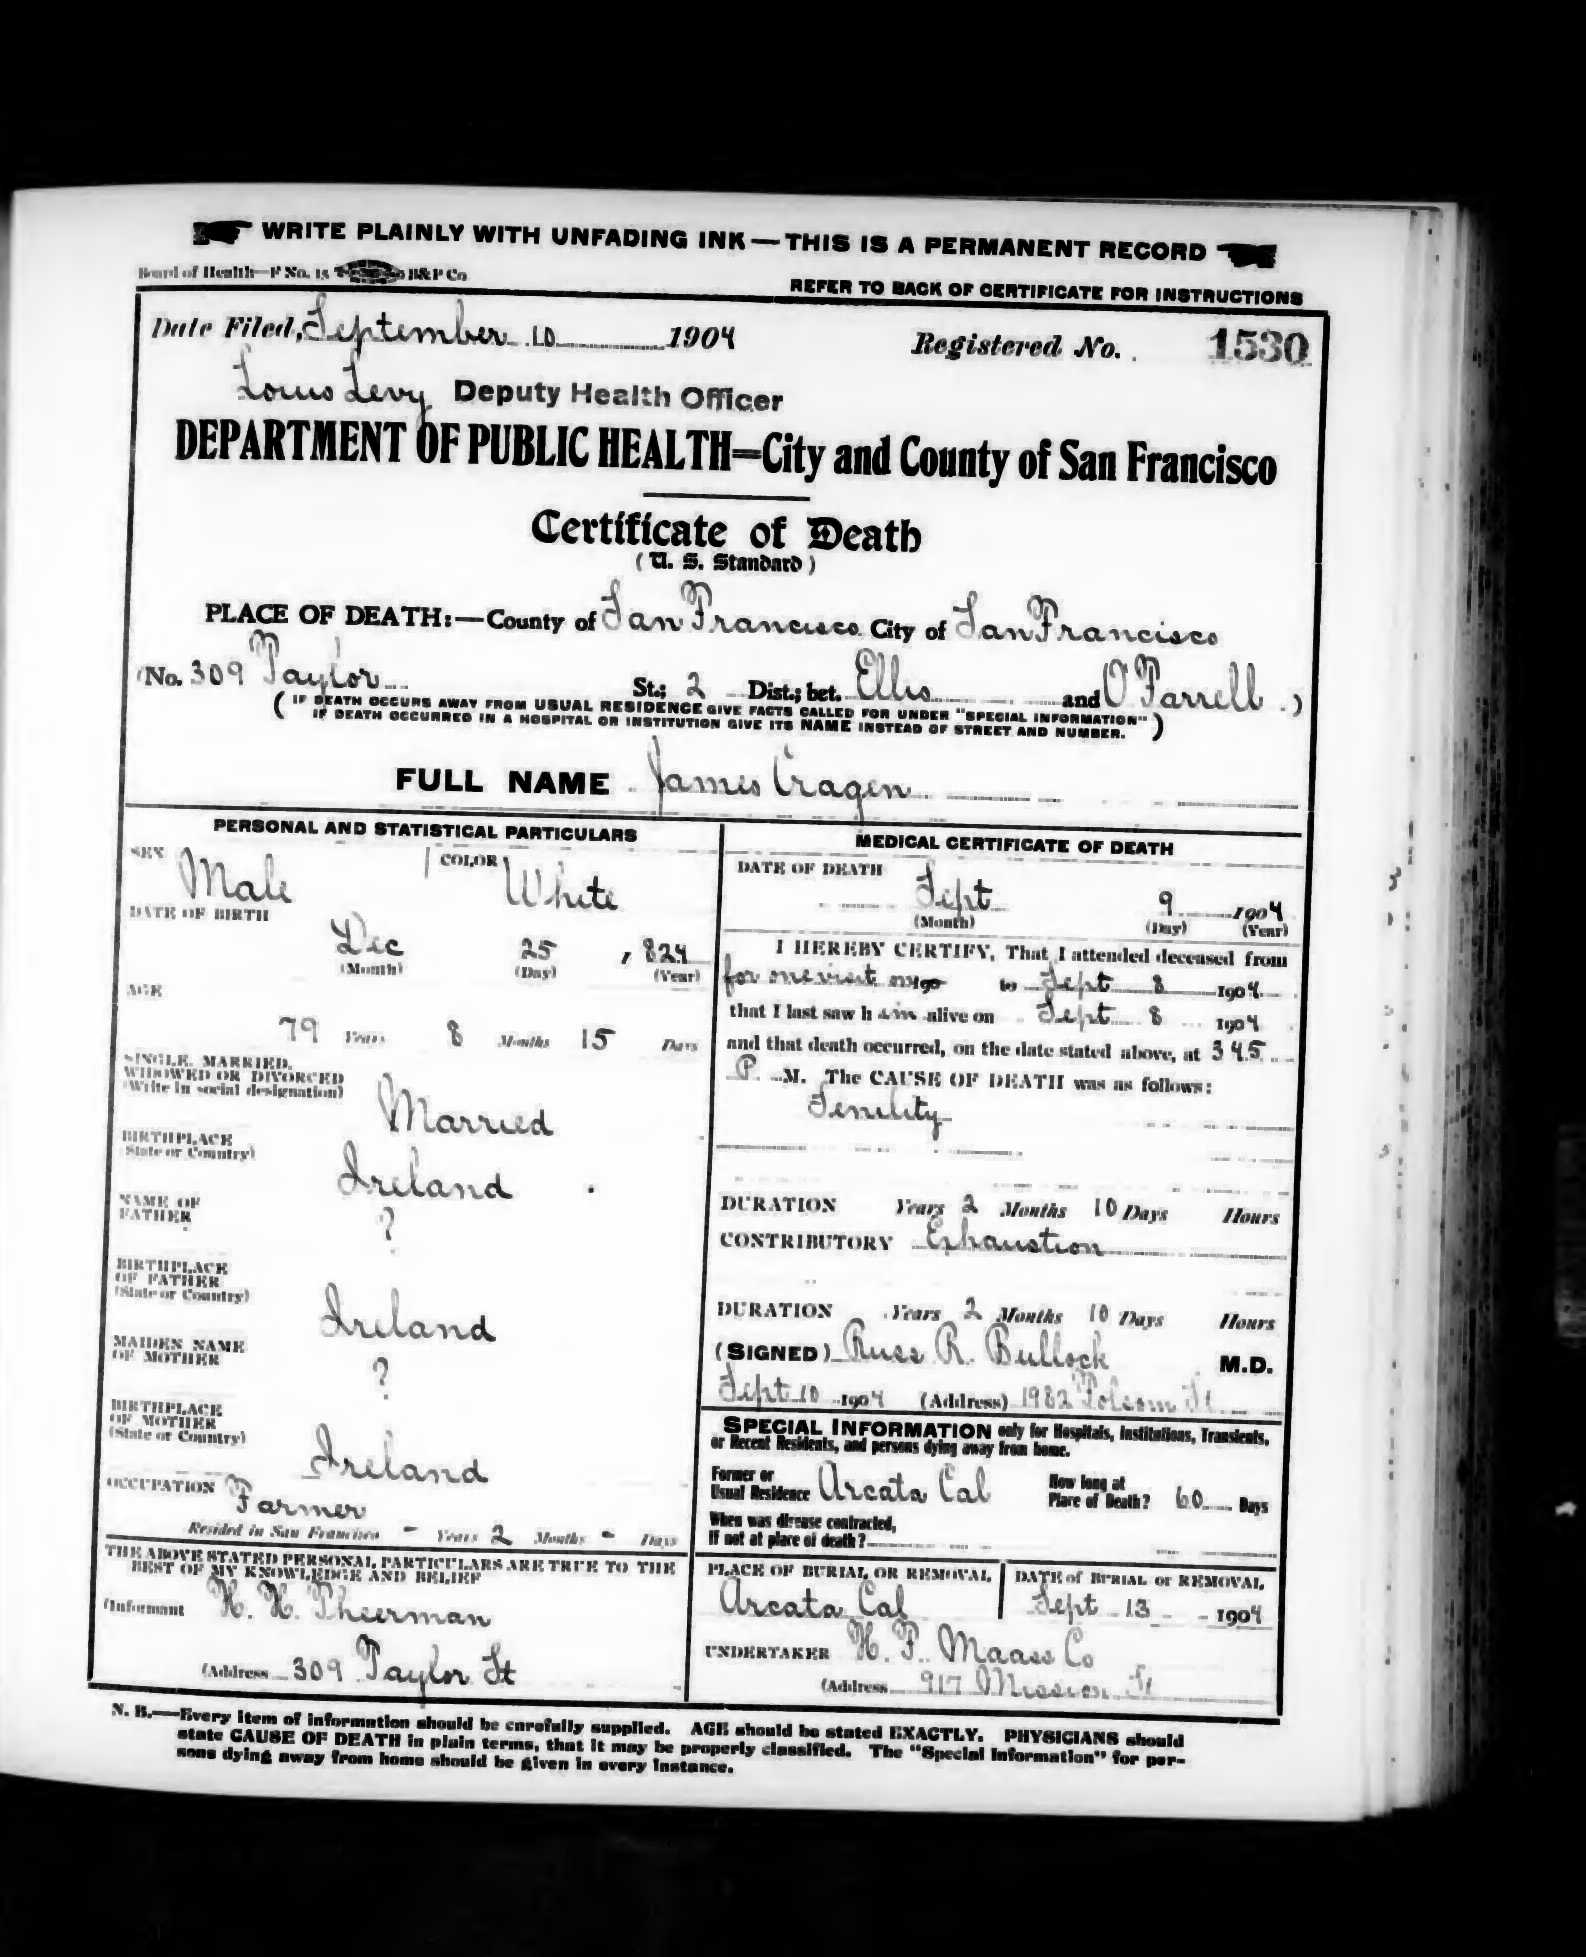 WRITE PLAINLY WITH UNFADING INK—THIS IS A PERMANENT RECORD
Board of Health—F No. 15 B&P Co
REFER TO BACK OF CERTIFICATE FOR INSTRUCTIONS
Date Filed, September 10 1904 Registered No. 1530
Louis Levy Deputy Health Officer
DEPARTMENT OF PUBLIC HEALTH=City and County of San Francisco
Certificate of Death
(U. S. Standard)
PLACE OF DEATH:—County of San Francisco City of San Francisco
(No. 309 Taylor St.; 2 Dist.; bet. Ellis and O'Farrell )
( IF DEATH OCCURS AWAY FROM USUAL RESIDENCE GIVE FACTS CALLED FOR UNDER "SPECIAL INFORMATION"
IF DEATH OCCURRED IN A HOSPITAL OR INSTITUTION GIVE ITS NAME INSTEAD OF STREET AND NUMBER. )
FULL NAME James Cragen
PERSONAL AND STATISTICAL PARTICULARS
SEX Male COLOR White
DATE OF BIRTH
Dec 25 , 824
(Month) (Day) (Year)
AGE
79 Years 8 Months 15 Days
SINGLE, MARRIED,
WIDOWED OR DIVORCED
(Write in social designation)
Married
BIRTHPLACE
(State or Country)
Ireland
NAME OF
FATHER
?
BIRTHPLACE
OF FATHER
(State or Country)
Ireland
MAIDEN NAME
OF MOTHER
?
BIRTHPLACE
OF MOTHER
(State or Country)
Ireland
OCCUPATION Farmer
Resided in San Francisco - Years 2 Months - Days
THE ABOVE STATED PERSONAL PARTICULARS ARE TRUE TO THE
BEST OF MY KNOWLEDGE AND BELIEF
(Informant H. H. Theerman
(Address 309 Taylor St
MEDICAL CERTIFICATE OF DEATH
DATE OF DEATH
Sept 9 1904
(Month) (Day) (Year)
I HEREBY CERTIFY, That I attended deceased from
for one visit on 190 to Sept 8 1904
that I last saw h im alive on Sept 8 1904
and that death occurred, on the date stated above, at 3 45
P. M. The CAUSE OF DEATH was as follows:
Senility
DURATION Years 2 Months 10 Days Hours
CONTRIBUTORY Exhaustion
DURATION Years 2 Months 10 Days Hours
(SIGNED) Russ R. Bullock M.D.
Sept 10 1904 (Address) 1982 Folsom St
SPECIAL INFORMATION only for Hospitals, Institutions, Transients,
or Recent Residents, and persons dying away from home.
Former or
Usual Residence Arcata Cal
How long at
Place of Death? 60 Days
When was disease contracted,
If not at place of death?
PLACE OF BURIAL OR REMOVAL
Arcata Cal
DATE of BURIAL or REMOVAL
Sept 13 1904
UNDERTAKER H. F. Maass Co
(Address 917 Mission St
N. B.—Every item of information should be carefully supplied. AGE should be stated EXACTLY. PHYSICIANS should
state CAUSE OF DEATH in plain terms, that it may be properly classified. The "Special Information" for per-
sons dying away from home should be given in every instance.